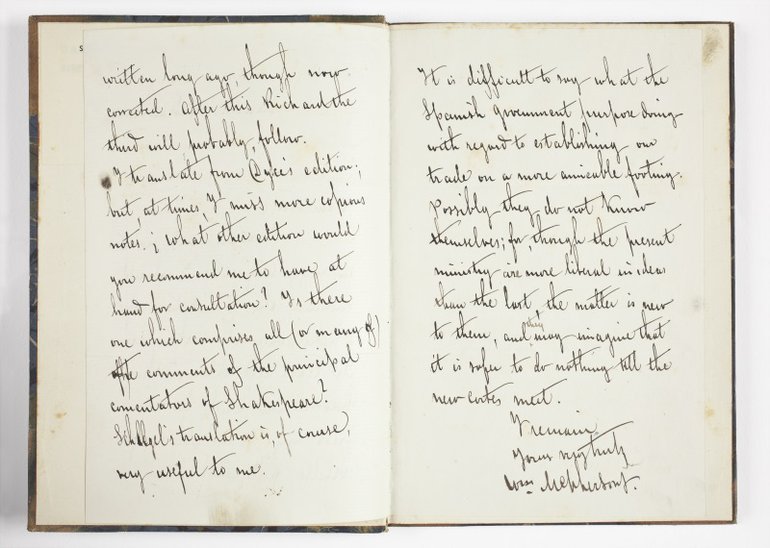 S
written long ago, though now
corrected. After this Richard the
third will probably, follow.
I translate from Dyce's edition;
but, at times, I miss more copious
notes. ¿ What other edition would
you recommend me to have at
hand for consultation? Is there
one which comprises all (or many of)
the comments of the principal
comentators of Shakespeare?
Schlegel's translation is, of course,
very useful to me.
It is difficult to say what the
Spanish Government purpose doing
with regard to establishing our
trade on a more amicable footing.
Possibly they do not know
themselves; for, though the present
ministry are more liberal in ideas
than the last, the matter is new
to them, and they may imagine that
it is safer to do nothing till the
new cortes meet.
I remain
Yours very truly
Wm Macpherson.